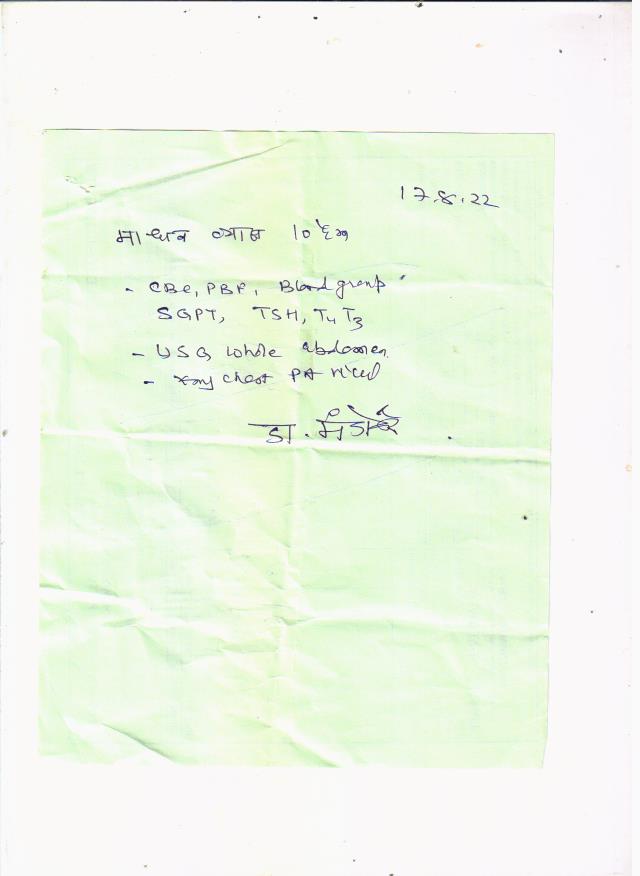 17.8.22
माधव व्यास 10
- CBC, PBF, Blood group
SGPT, TSH, T4 T3
- USG whole abdomen
- Xray chest PA view
डा.